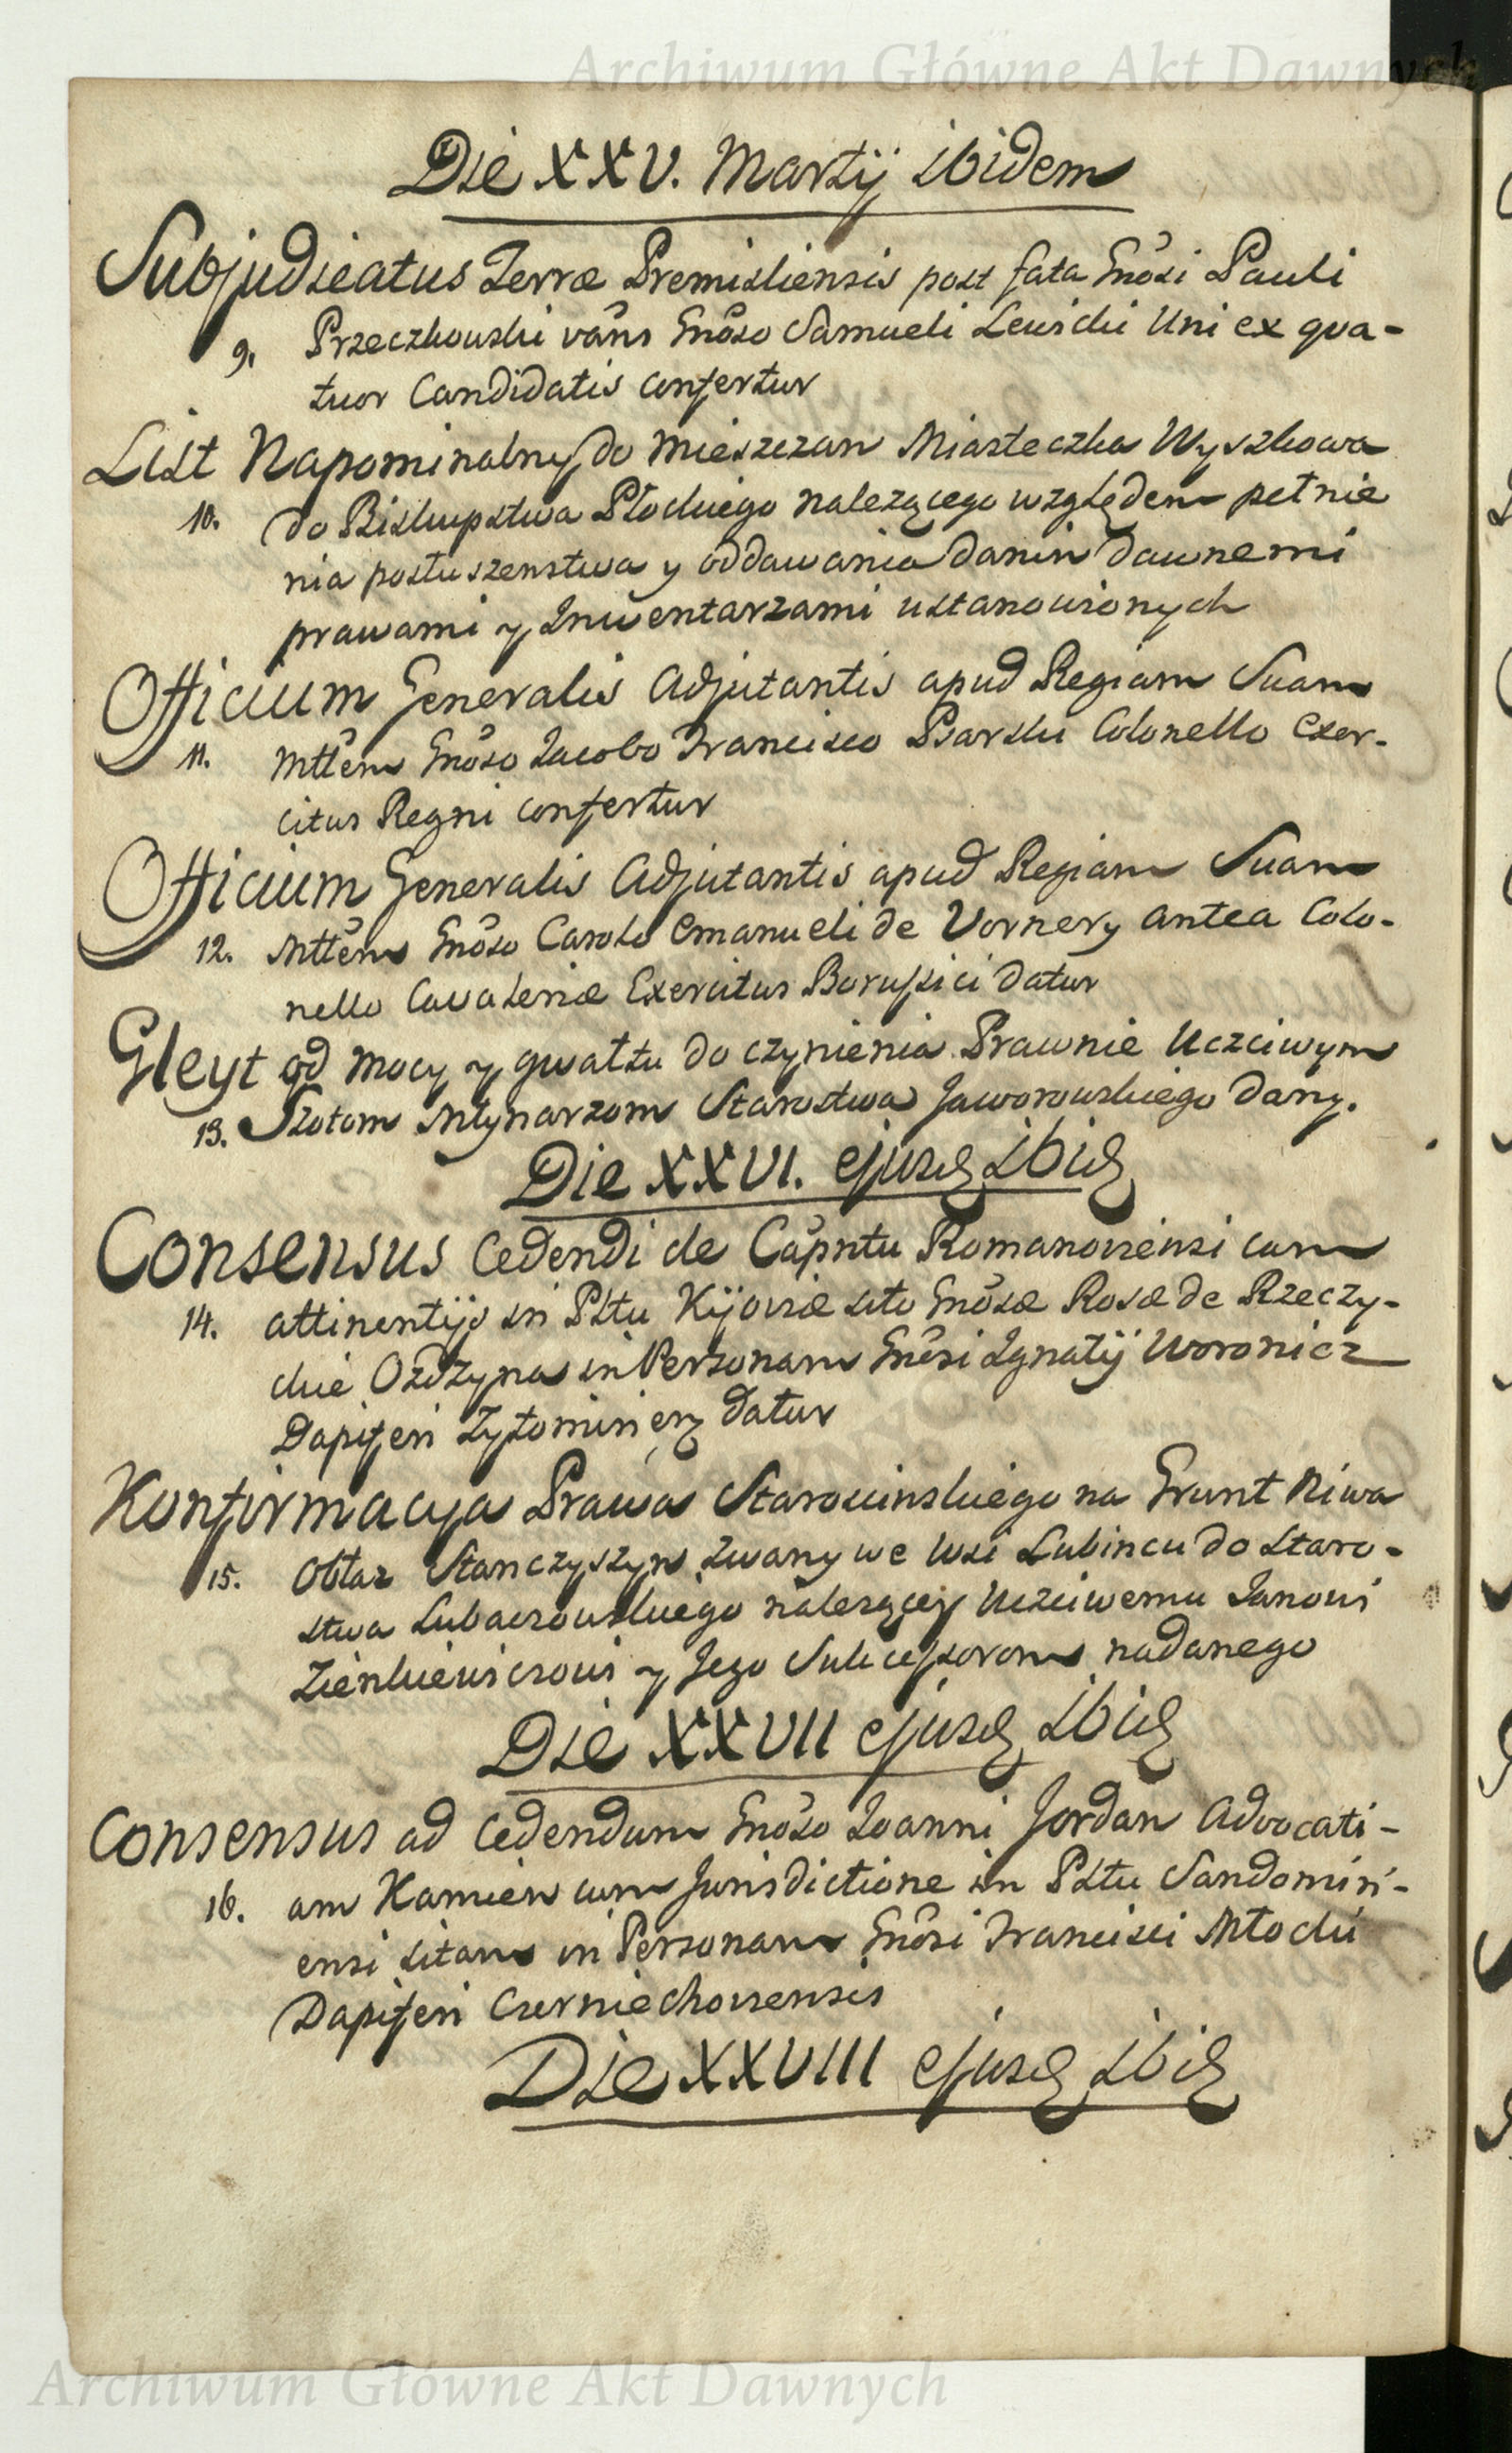 Archiwum Główne Akt Dawnych
Die XXV. Martij ibidem
Subjudicatus Terræ Premisliensis post fata Gnosi Pauli
9. Przeczkowski vans Gnoso Samueli Lewicki Uni ex qua-
tuor Candidatis confertur
List Napominalny do Mieszczan Miasteczka Wyszkowa
10. do Biskupstwa Płockiego nalezącego względem pełnie
nia posłuszenstwa y oddawania danin dawnemi
prawami y Inwentarzami ustanowionych
Officium Generalis Adjutantis apud Regiam Suam
11. Mttem Gnoso Jacobo Francisco Psarski Colonello Exer-
citus Regni confertur
Officium Generalis Adjutantis apud Regiam Suam
12. Mttem Gnoso Carolo Emanueli de Vornery antea Colo-
nello Cavaleriæ Exercitus Borussici datur
Gleyt od mocy y gwałtu do czynienia Prawnie Uczciwym
13. Szotom Młynarzom Starostwa Jaworowskiego dany.
Die XXVI. ejusd ibid
Consensus cedendi de Capntu Romanoviensi cum
14. attinentijs in Psttu Kijoviæ sito Gnosæ Rosæ de Rzeczy-
ckie Ozdzyna in Personam Gnosi Ignatij Woronicz
Dapiferi Zytominien datur
Konfirmacya Prawa Staroscinskiego na Grunt Niwa
15. Obłaz Stanczyszyn zwany we Wsi Lubincu do Staro-
stwa Lubaczowskiego nalezącey Uczciwemu Janowi
Zienkiewiczowi y Jego Sukcessorom nadanego
Die XXVII ejusd ibid
Consensus ad cedendum Gnoso Joanni Jordan Advocati-
16. am Kamien cum Jurisdictione in Psttu Sandomiri-
ensi sitam in Personam Gnosi Francisci Młocki
Dapiferi Czerniechoviensis
Die XXVIII ejusd ibid
Archiwum Główne Akt Dawnych